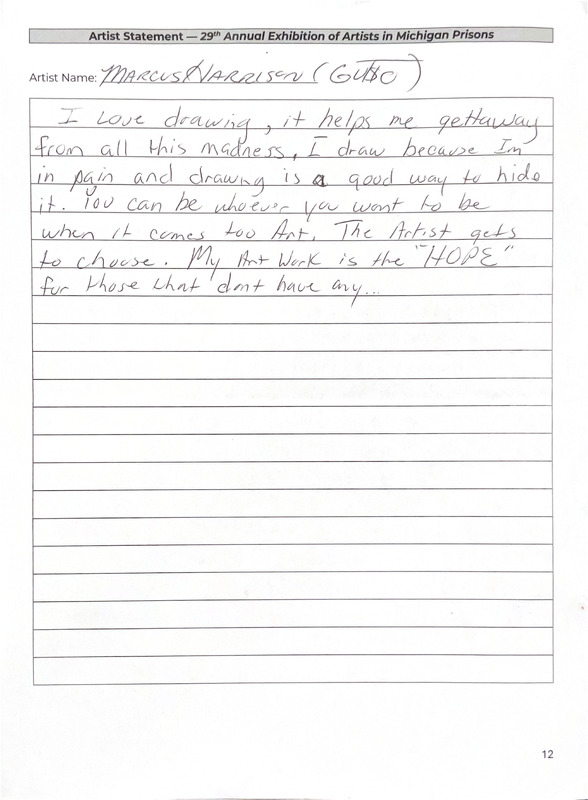 Artist Statement — 29th Annual Exhibition of Artists in Michigan Prisons
Artist Name: Marcus Harrison (Gusso)
I Love drawing, it helps me gettaway
from all this madness, I draw because Im
in pain and drawng is a good way to hide
it. You can be whoever you want to be
when it comes too Art. The Artist gets
to choose. My Art Work is the "HOPE"
for those that dont have any...
12